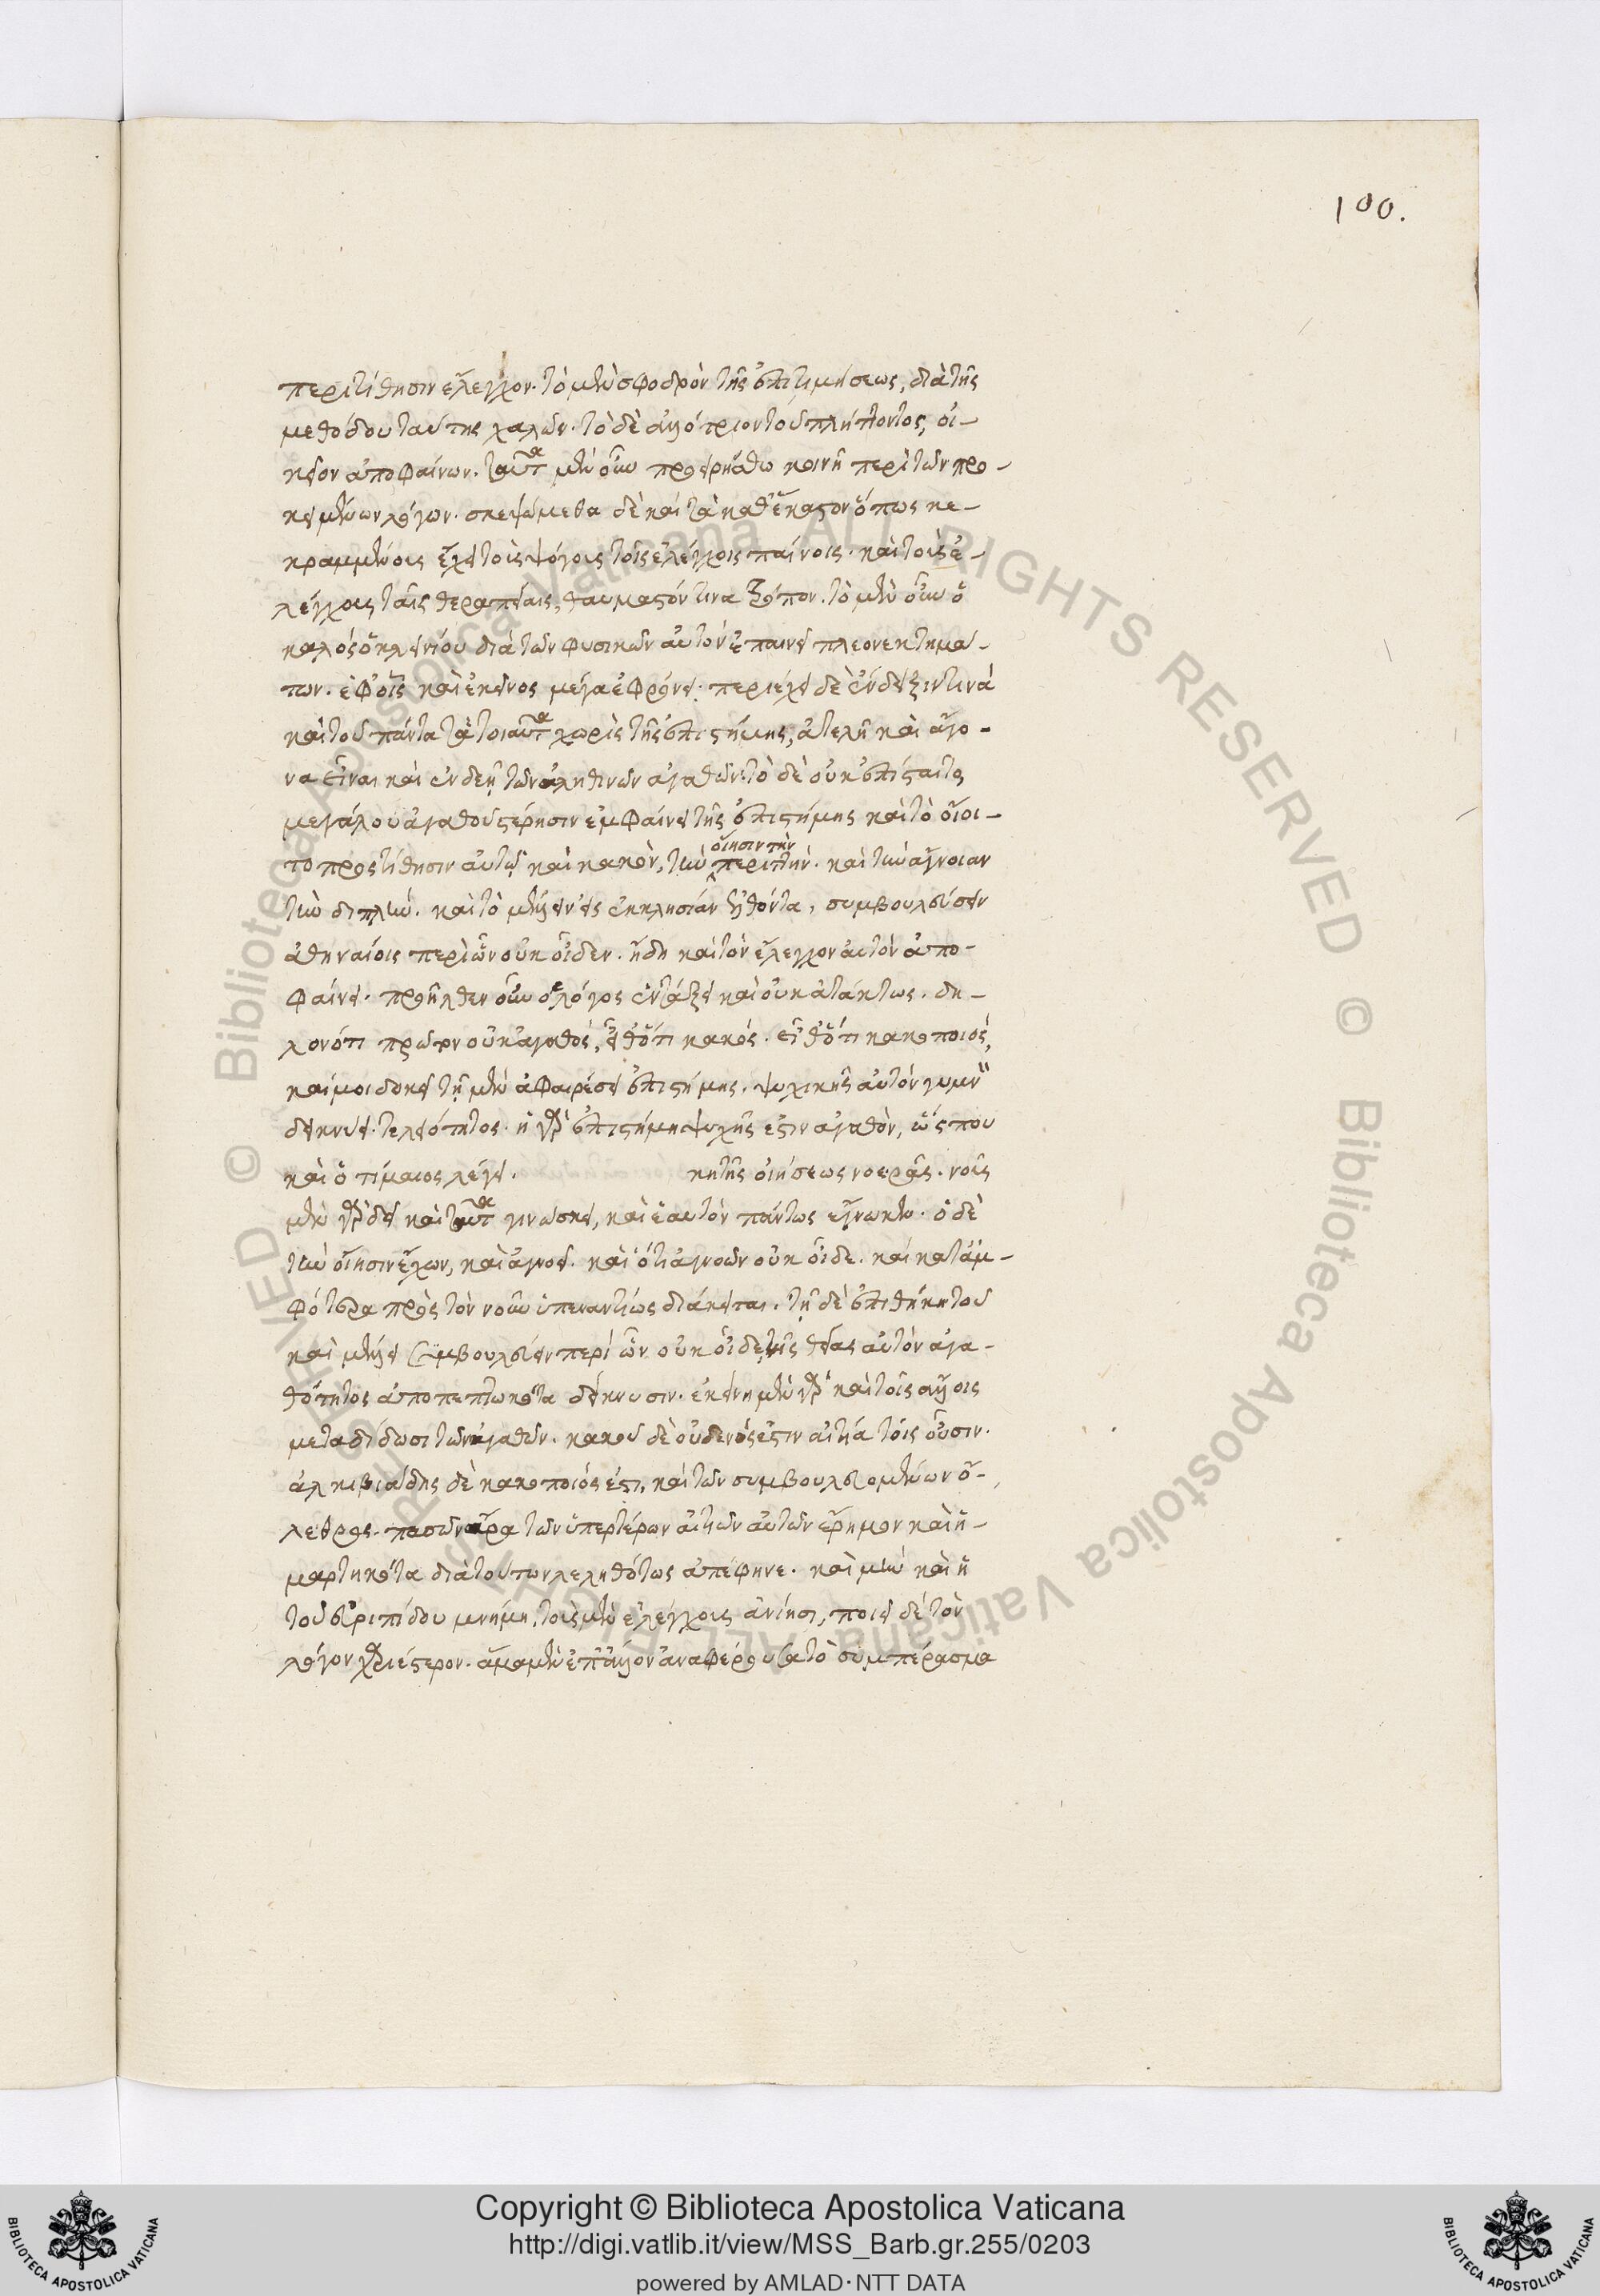 100.
περιτίθησιν ἔλεγχον. τὸ μὲν σφοδρὸν τῆς ἐπιτιμήσεως, διὰ τῆς
μεθόδου ταύτης χαλῶν. τὸ δὲ ἀλλότριον τοῦ πλήττοντος, οἰ-
κεῖον ἀποφαίνων. ταῦτα μὲν οὖν προειρήσθω κοινῆ περὶ τῶν προ-
κειμένων λόγων. σκεψώμεθα δὲ καὶ τὰ καθ' ἕκαστον ὅπως κε-
κραμμένοις ἔχει τοῖς ψόγοις τοῖς ἐλέγχοις παίνοις. καὶ τοῖς ἐ-
λέγχοις ταῖς θεραπείαις, θαυμαστόν τινα τρόπον. τὸ μὲν οὖν ὁ
καλὸς ὁ κλεινίου διὰ τῶν φυσικῶν αὐτὸν ἐπαινεῖ πλεονεκτημά-
των. ἐφ' οἷς καὶ ἐκεῖνος μέγα ἐφρόνει. περιέχει δὲ ἔνδειξιν τινὰ
καὶ τοῦ πάντα τὰ τοιαῦτα χωρὶς τῆς ἐπιστήμης, ἀτελῆ καὶ ἄγο-
να εἶναι καὶ ἐνδεῆ τῶν ἀληθινῶν ἀγαθῶν. τὸ δὲ οὐκ ἐπίσταιτο
μεγάλου ἀγαθοῦ στέρησιν ἐμφαίνει τῆς ἐπιστήμης καὶ τὸ οἴοι-
οἴησιν τὴν
το προστίθησιν αὐτῷ καὶ κακὸν, τὴν περιττὴν. καὶ τὴν ἄγνοιαν
τὴν διπλῆν. καὶ τὸ μέλλειν εἰς ἐκκλησίαν ἐλθόντα, συμβουλεύσειν
ἀθηναίοις περὶ ὧν οὐκ οἶδεν. ἤδη καὶ τὸν ἔλεγχον αὐτὸν ἀπο-
φαίνει. προῆλθεν οὖν ὁ λόγος ἐν τάξει καὶ οὐκ ἀτάκτως. δη-
λονότι πρῶτον οὐκ ἀγαθὸς, εἶθ' ὅτι κακός. εἶθ' ὅτι κακοποιός,
καί μοι δοκεῖ τῇ μὲν ἀφαιρέσει ἐπιστήμης. ψυχικῆς αὐτὸν γυμνὸν
δεικνύει τελειότητος. ἡ γὰρ ἐπιστήμη ψυχῆς ἐστιν ἀγαθὸν, ὥς που
καὶ ὁ τίμαιος λέγει. κητῆς οἰήσεως νοερᾶς. νοῦς
μὲν γὰρ δεῖ καὶ ταῦτα γινώσκει, καὶ ἑαυτὸν πάντως ἐγνωκὼς. ὁ δὲ
τὴν οἴησιν ἔχων, καὶ ἀγνοεῖ. καὶ ὅτι ἀγνοῶν οὐκ οἶδε. καὶ κατ' ἀμ-
φότερα πρὸς τὸν νοῦν ὑπεναντίως διάκειται. τῇ δὲ ἐπιθήκῃ τοῦ
καὶ μέλλει συμβουλεύειν περὶ ὧν οὐκ οἶδε, τῆς θείας αὐτὸν ἀγα-
θότητος ἀποπεπτωκότα δείκνυσιν. ἐκείνη μὲν γὰρ καὶ τοῖς ἄλλοις
μεταδίδωσι τῶν ἀγαθῶν. κακοῦ δὲ οὐδενός ἐστιν αἰτία τοῖς οὖσιν.
ἀλκιβιάδης δὲ κακοποιός ἐστι, καὶ τῶν συμβουλευομένων ὄ-
λεθρος. πασῶν ἄρα τῶν ὑπερτέρων αἰτιῶν αὐτὸν ἔρημον καὶ ἡ-
μαρτηκότα διὰ τούτων λεληθότως ἀπέφηνε. καὶ μὴν καὶ ἡ
τοῦ εὐριπίδου μνήμη, τοῖς μὲν ἐλέγχοις ἀνίησι, ποιεῖ δὲ τὸν
λόγον χαριέστερον. ἅμα μὲν ἐπ' ἄλλον ἀναφέρουσα τὸ συμπέρασμα
Copyright © Biblioteca Apostolica Vaticana
http://digi.vatlib.it/view/MSS_Barb.gr.255/0203
powered by AMLAD·NTT DATA